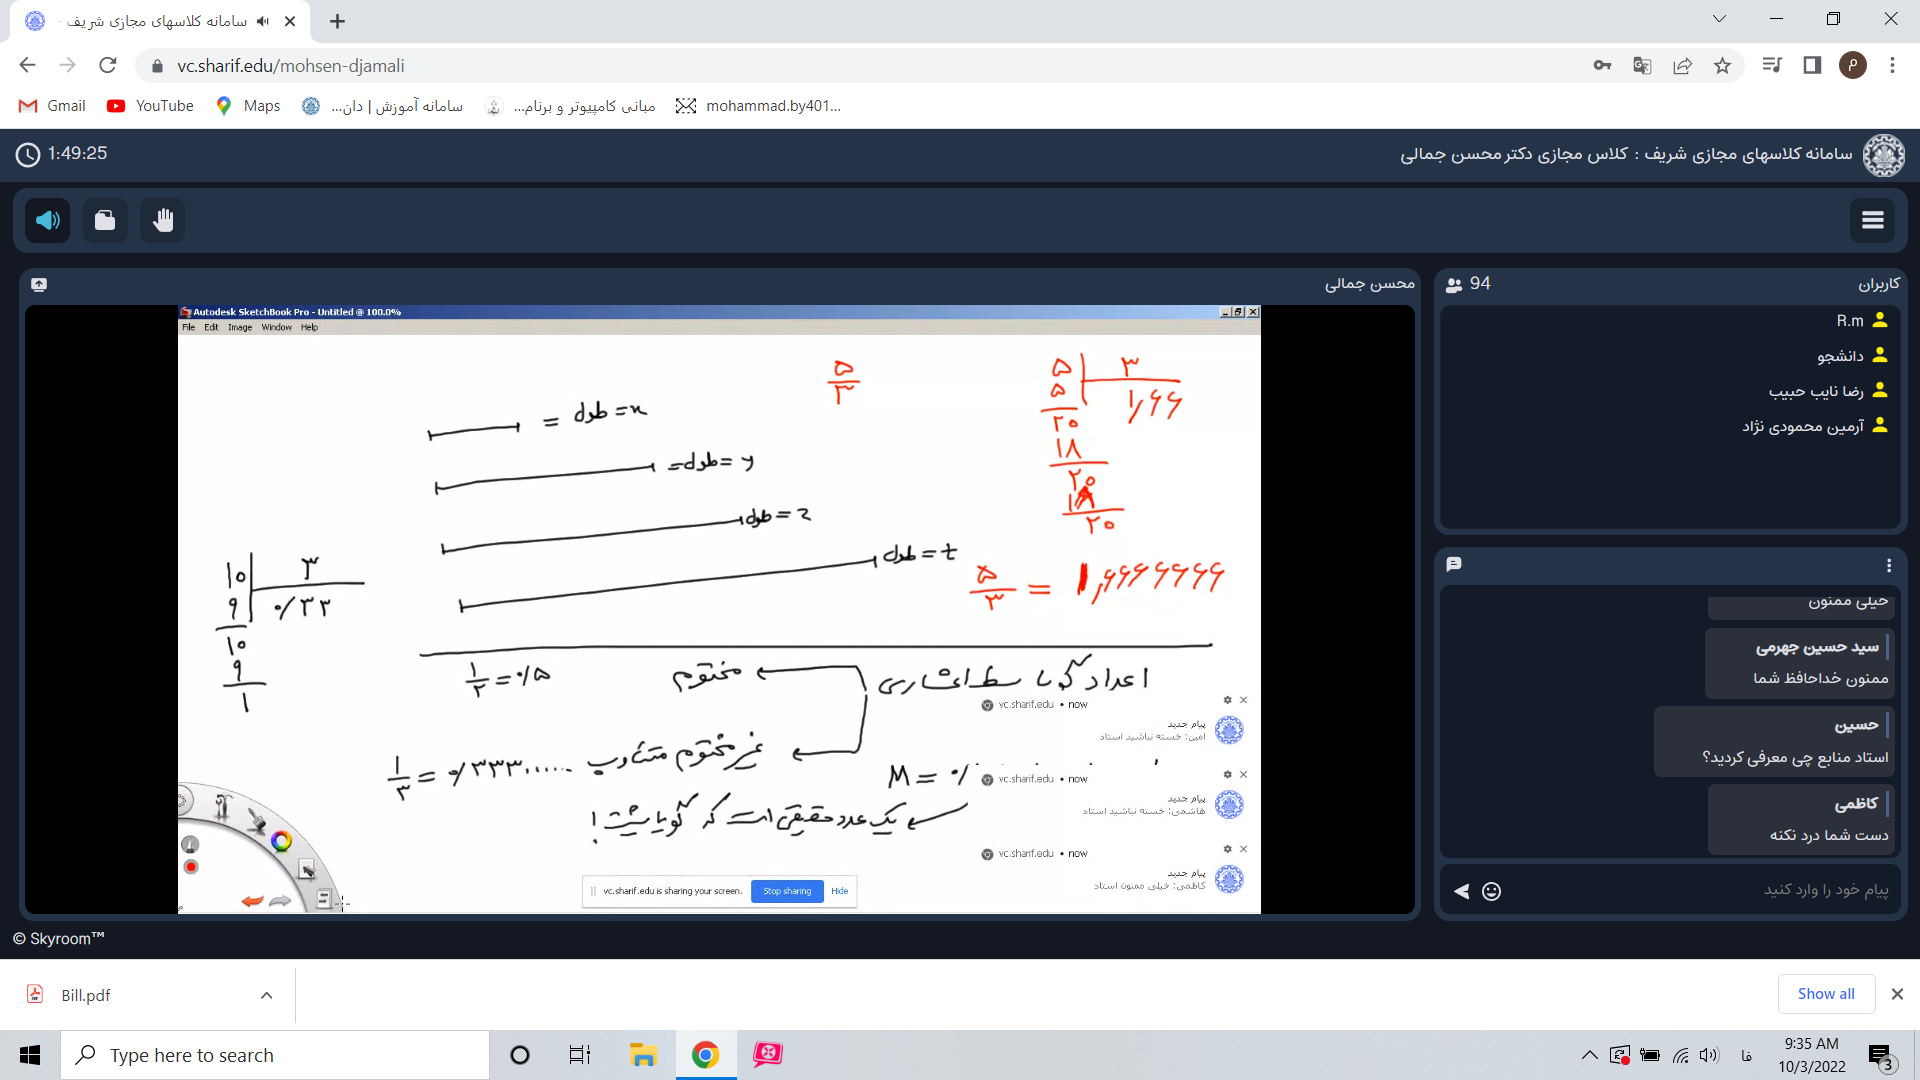 سامانه کلاسهای مجازی شریف -
vc.sharif.edu/mohsen-djamali
P
Gmail
YouTube
Maps
سامانه آموزش | دان...
مبانی کامپیوتر و برنام...
mohammad.by401...
1:49:25
سامانه کلاسهای مجازی شریف : کلاس مجازی دکتر محسن جمالی
محسن جمالی
Autodesk SketchBook Pro - Untitled @ 100.0%
File Edit Image Window Help
= طول = x
= طول = y
طول = z
طول = t
۵
۳
۵ ۳
۵ ۱,۶۶
۲۰
۱۸
۲۰
۱۸
۲۰
۵/۳ = ۱,۶۶۶۶۶۶۶
۱۰ ۳
۹ ۰/۳۳
۱۰
۹
۱
اعداد گویا بسط اعشاری
مختوم
۱/۲ = ۰/۵
غیر مختوم متناوب
۱/۳ = ۰/۳۳۳......
M = ۰/
یک عدد حقیقی است که گویا نیست !
vc.sharif.edu • now
پیام جدید
امین: خسته نباشید استاد
vc.sharif.edu • now
پیام جدید
هاشمی: خسته نباشید استاد
vc.sharif.edu • now
پیام جدید
کاظمی: خیلی ممنون استاد
vc.sharif.edu is sharing your screen.
Stop sharing
Hide
کاربران
94
R.m
دانشجو
رضا نایب حبیب
آرمین محمودی نژاد
خیلی ممنون
سید حسین جهرمی
ممنون خداحافظ شما
حسین
استاد منابع چی معرفی کردید؟
کاظمی
دست شما درد نکنه
پیام خود را وارد کنید
© Skyroom™
Bill.pdf
Show all
Type here to search
فا
9:35 AM
10/3/2022
3